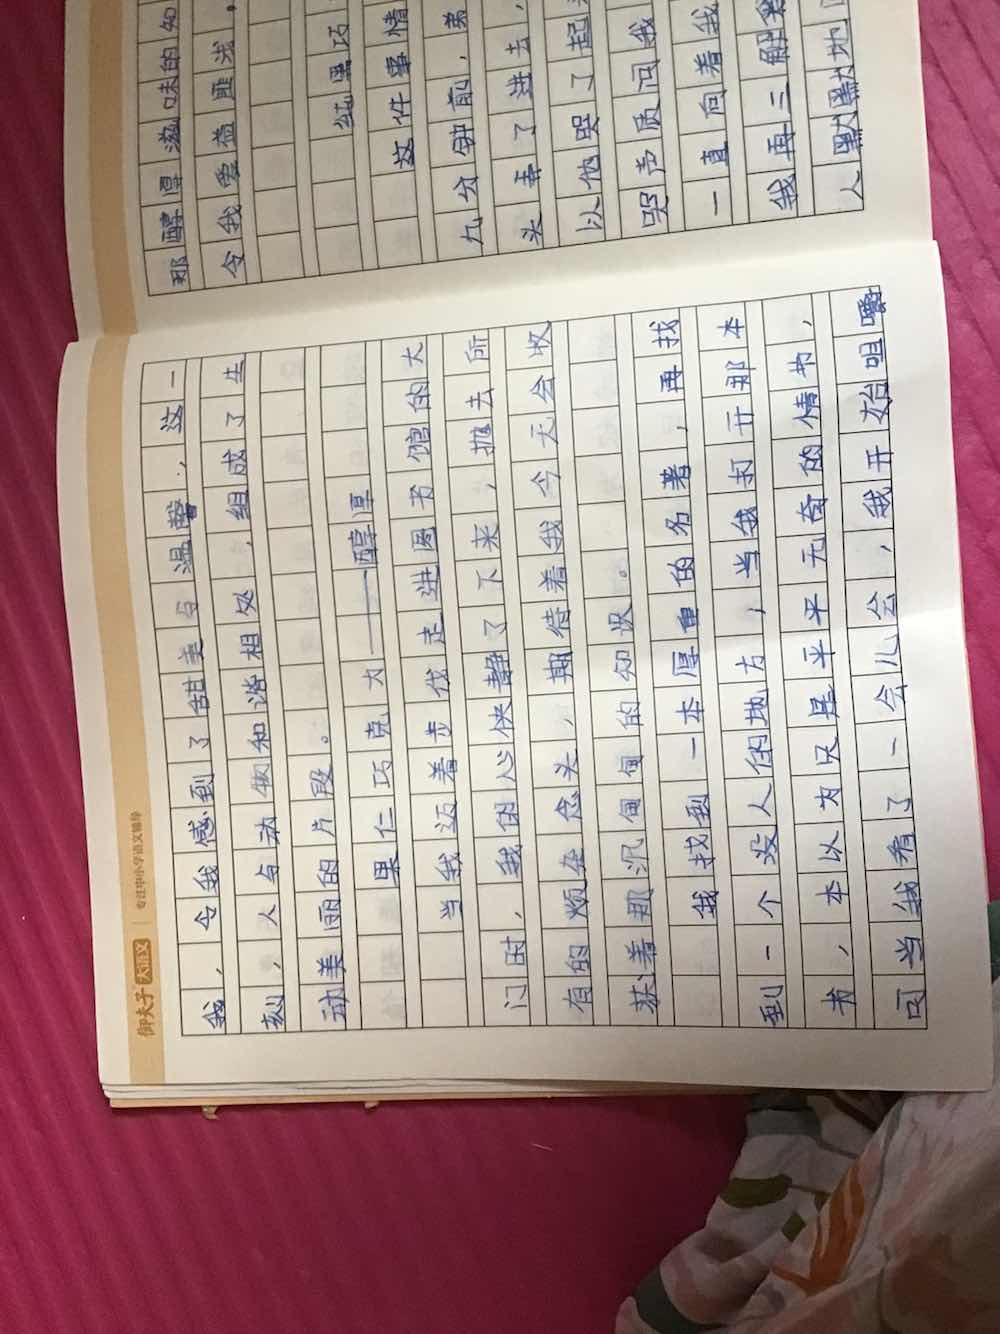 御夫子 大语文 | 专注中小学语文辅导
我,令我感到了甜美与温馨.,这一
刻,人与动物和谐相处,组成了生
动美丽的片段。
果仁巧克力——醇厚
当我迈着步伐走进图书馆的大
门时,我的心快静了下来,抛去所
有的烦杂念头,期待着我今天会收
获着那沉甸甸的知识。
我找到一本厚重的名著,再找
到一个没人的地方,当我打开那本
书,本以为只是平平无奇的情节,
可当我看了一会儿会,我开始咀嚼
那醇厚滋味的知
令我受益匪浅,
纯黑巧
这件事情
九分钟前,弟
头弄了进去,
以他哭了起
哭声质问我
一直向着我
我再三解
人默默地